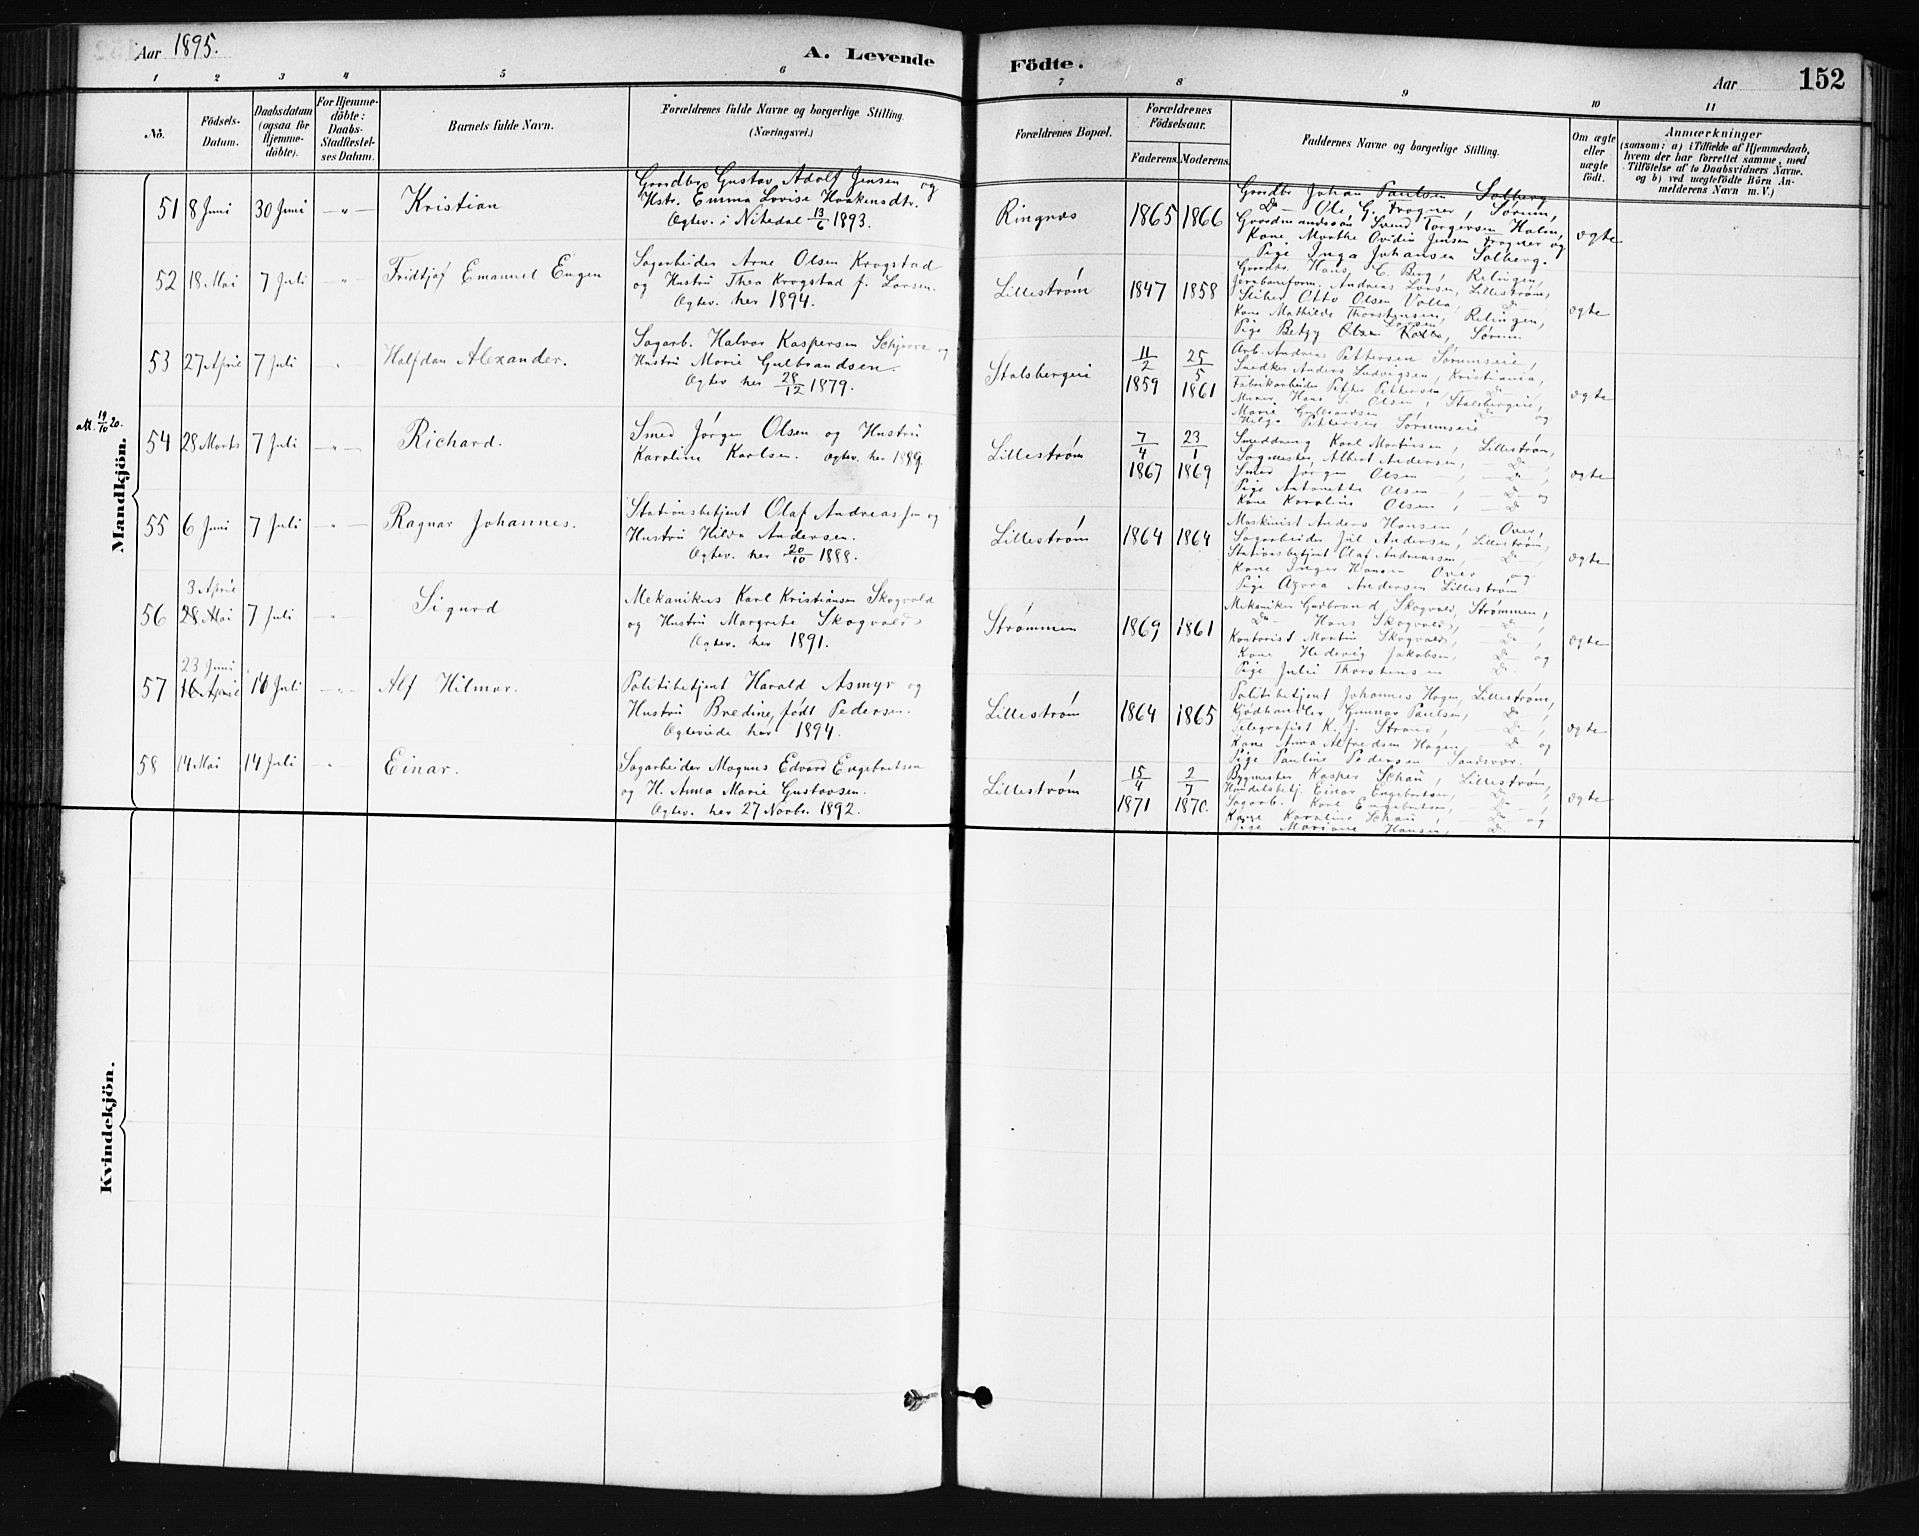 Aar 1895.
A. Levende Födte.
Aar 152
1 2 3 4 5 6 7 8 9 10 11
No.
Födsels-
Datum.
Daabsdatum
(ogsaa for
Hjemme-
döbte).
For Hjemme-
döbte:
Daabs-
Stadfæstel-
ses Datum.
Barnets fulde Navn.
Forældrenes fulde Navne og borgerlige Stilling.
(Næringsvei.)
Forældrenes Bopæl.
Forældrenes
Födselsaar.
Faderens. Moderens.
Faddernes Navne og borgerlige Stilling.
Om ægte
eller
uægte
födt.
Anmærkninger
(saasom: a) i Tilfælde af Hjemmedaab,
hvem der har forrettet samme, med
Tilföielse af to Daabsvidners Navne.
og b) ved uægtefödte Börn An-
melderens Navn m. V.)
Mandkjön.
51 8 Juni 30 Juni -"- Kristian
Gaardbr. Gustav Adolf Jensen og
Hstr. Emma Lovise Haakensdtr.
Ægtev. i Nitedal 13/6 1893.
Ringnæs 1865 1866
Gaardbr. Johan Paulsen Solberg
Do Ole G. Frogner, Sørum,
Gaardmandssøn Svend Torgersen Holm,
Kone Marthe Ovidia Jensen Frogner og
Pige Inga Johansen Solberg.
ægte
52 18 Mai 7 Juli " Fridtjof Emanuel Eugen
Sagarbeider Arne Olsen Krogstad
og Hustru Thea Krogstad f. Larsen.
Ægtev. her 1894.
Lillestrøm 1847 1858
Gaardbr. Hans C. Berg, Relingen,
Jernbaneform. Andreas Larsen, Lillestrøm,
Sliber Otto Olsen Valla, Do,
Kone Mathilde Thorstensen, Relingen,
Pige Betzy Larsen, Sørum
ægte
53 27 April 7 Juli -"- Halfdan Alexander.
Sagarb. Halvor Kaspersen Schjerve og
Hustru Marie Gulbrandsen.
Ægtev. her 28/12 1879.
Stalsbergeie 11/2 1859 25/5 1861
Arb. Andreas Pettersen Sørumseie,
Snedker Anders Ludvigsen, Kristiania,
Fabrikarbeider Petter Pettersen Do,
Murer Hans S. Olsen, Stalsbergeie,
Marie Gulbrandsen Do og
Helga Pettersen Sørumseie
ægte
att. 19/10 20.
54 28 Marts 7 Juli -"- Richard.
Smed Jørgen Olsen og Hustru
Karoline Karlsen. Ægtev. her 1889.
Lillestrøm 7/4 1867 23/1 1869
Smeddreng Karl Martinsen, Lillestrøm,
Sagmester Albert Andersen, Do,
Smed Jørgen Olsen, Do,
Pige Antonette Olsen, Do og
Kone Karoline Olsen, Do
ægte
55 6 Juni 7 Juli -"- Ragnar Johannes.
Stationsbetjent Olaf Andreassen og
Hustru Hilda Andersen.
Ægtev. her 20/10 1888.
Lillestrøm 1864 1864
Maskinist Anders Hansen, Over,
Sagarbeider Jul Andersen, Lillestrøm,
Stationsbetjent Olaf Andreassen, Do,
Kone Inger Hansen Over og
Pige Agora Andersen Lillestrøm
ægte
56 3 April 28 Mai 7 Juli -"- Sigurd
Mekanikus Karl Kristiansen Skogvold
og Hustru Margrete Skogvold.
Ægtev. her 1891.
Strømmen 1869 1861
Mekaniker Gudbrand Skogvold, Strømmen,
Do Hans Skogvold, Do,
Kontorist Martin Skogvold, Do,
Kone Hedevig Jakobsen, Do og
Pige Julie Thorstensen Do.
ægte
57 23 Juni 16 April 14 Juli -"- Alf Hilmar.
Politibetjent Harald Asmyr og
Hustru Bredine, født Pedersen.
Ægteviede her 1894.
Lillestrøm 1864 1865
Politibetjent Johannes Hagen, Lillestrøm,
Kjødhandler Gunnar Paulsen, Do,
Telegrafist K. J. Strand, Do,
Kone Anna Alfredsen Hagen, Do og
Pige Pauline Pedersen Sandsvær.
ægte
58 14 Mai 14 Juli " Einar.
Sagarbeider Magnus Edvard Engebretsen
og H. Anna Marie Gustavsen.
Ægtev. her 27 Novbr. 1892.
Lillestrøm 15/4 1871 2/7 1870.
Bygmester Kasper Schau, Lillestrøm,
Handelsbetj. Einar Engebretsen, Do,
Sagarb. Karl Engebretsen, Do,
Kone Karoline Schau, Do og
Pige Mariane Hansen, Do
ægte
Kvindekjön.